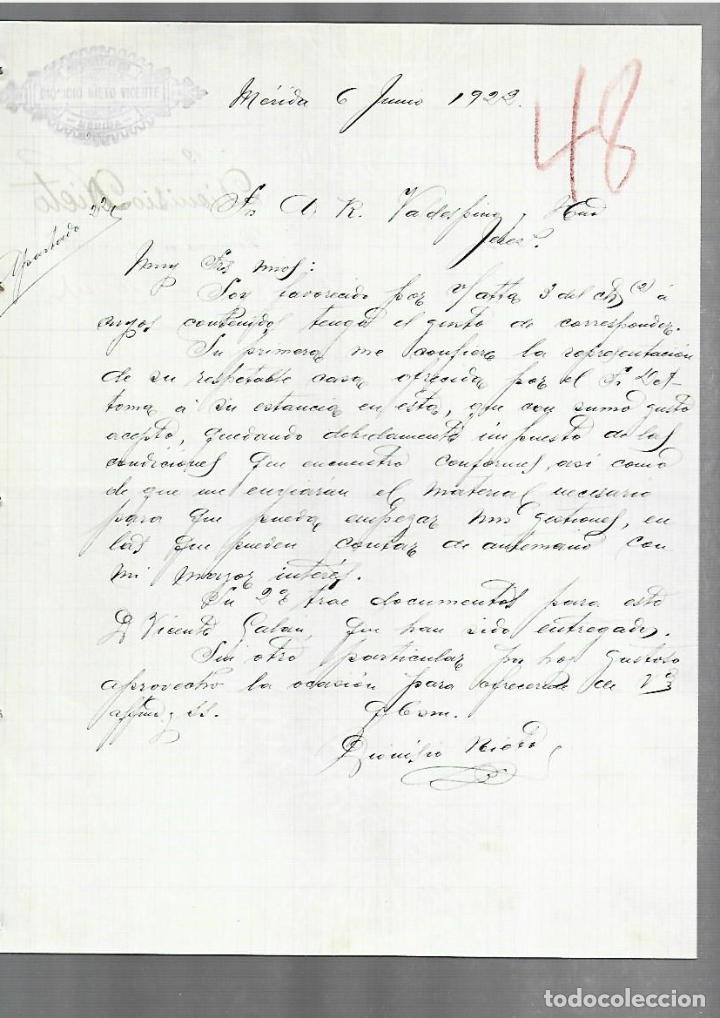 DIONISIO NIETO VICENTE
MERIDA
Mérida 6 Junio 1922.
48
Dionisio Nieto
Apartado 22
Srs A. R. Valdespino y Hno
Jerez.
Muy Srs mios:
Soy favorecido por s/atta 3 del cte (2) á
cuyos contenidos tengo el gusto de corresponder.
Su primera me confiere la representación
de su respetable casa ofrecida por el Sr
á su estancia en esta, que con sumo gusto
acepto, quedando debidamente impuesto de las
condiciones que encuentro conformes, asi como
de que me enviarán el material necesario
para que pueda empezar mis gestiones, en
las que pueden contar de antemano con
mi mayor interés.
Su 2ª trae documentos para este
D Vicente Galan, que han sido entregados.
Sin otro particular por hoy gustoso
aprovecho la ocasión para ofrecerme de Vds
affmo y ss.
q b s m.
Dionisio Nieto
todocoleccion